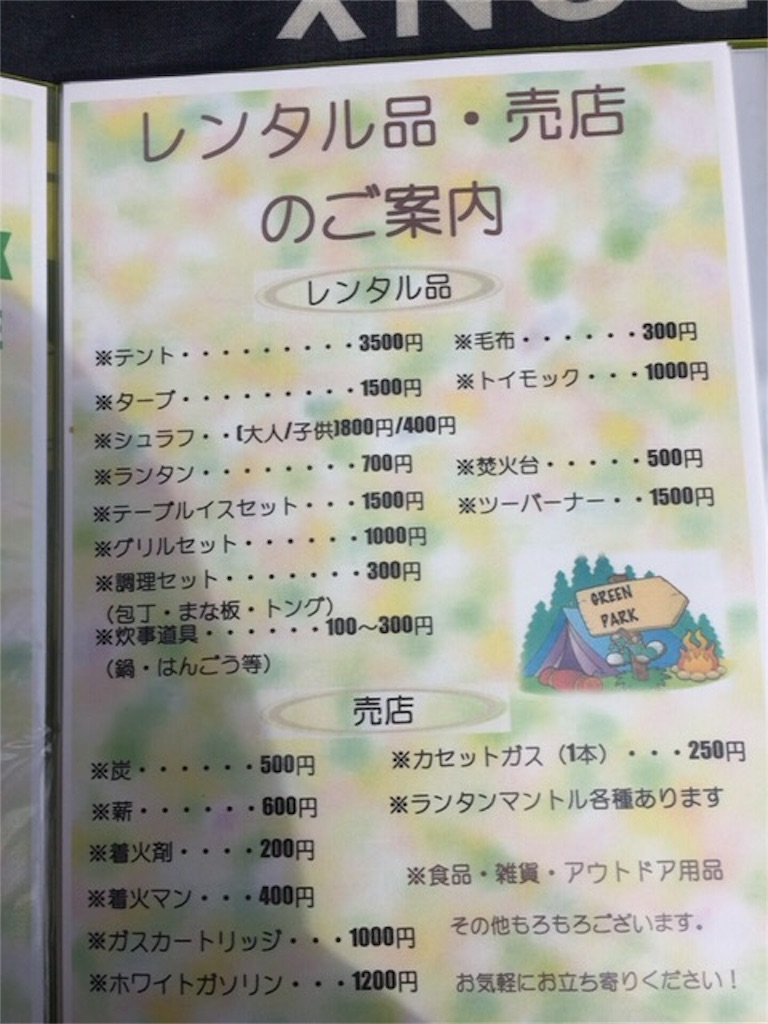 レンタル品・売店
のご案内
レンタル品
※テント・・・・・・・・・3500円
※タープ・・・・・・・・・1500円
※シュラフ・・(大人/子供)800円/400円
※ランタン・・・・・・・・700円
※テーブルイスセット・・・1500円
※グリルセット・・・・・・1000円
※調理セット・・・・・・・300円
（包丁・まな板・トング）
※炊事道具・・・・・・100～300円
（鍋・はんごう等）
※毛布・・・・・・300円
※トイモック・・・1000円
※焚火台・・・・・500円
※ツーバーナー・・1500円
GREEN
PARK
売店
※炭・・・・・・500円
※薪・・・・・・600円
※着火剤・・・・200円
※着火マン・・・400円
※ガスカートリッジ・・・1000円
※ホワイトガソリン・・・1200円
※カセットガス（1本）・・・250円
※ランタンマントル各種あります
※食品・雑貨・アウトドア用品
その他もろもろございます。
お気軽にお立ち寄りください！